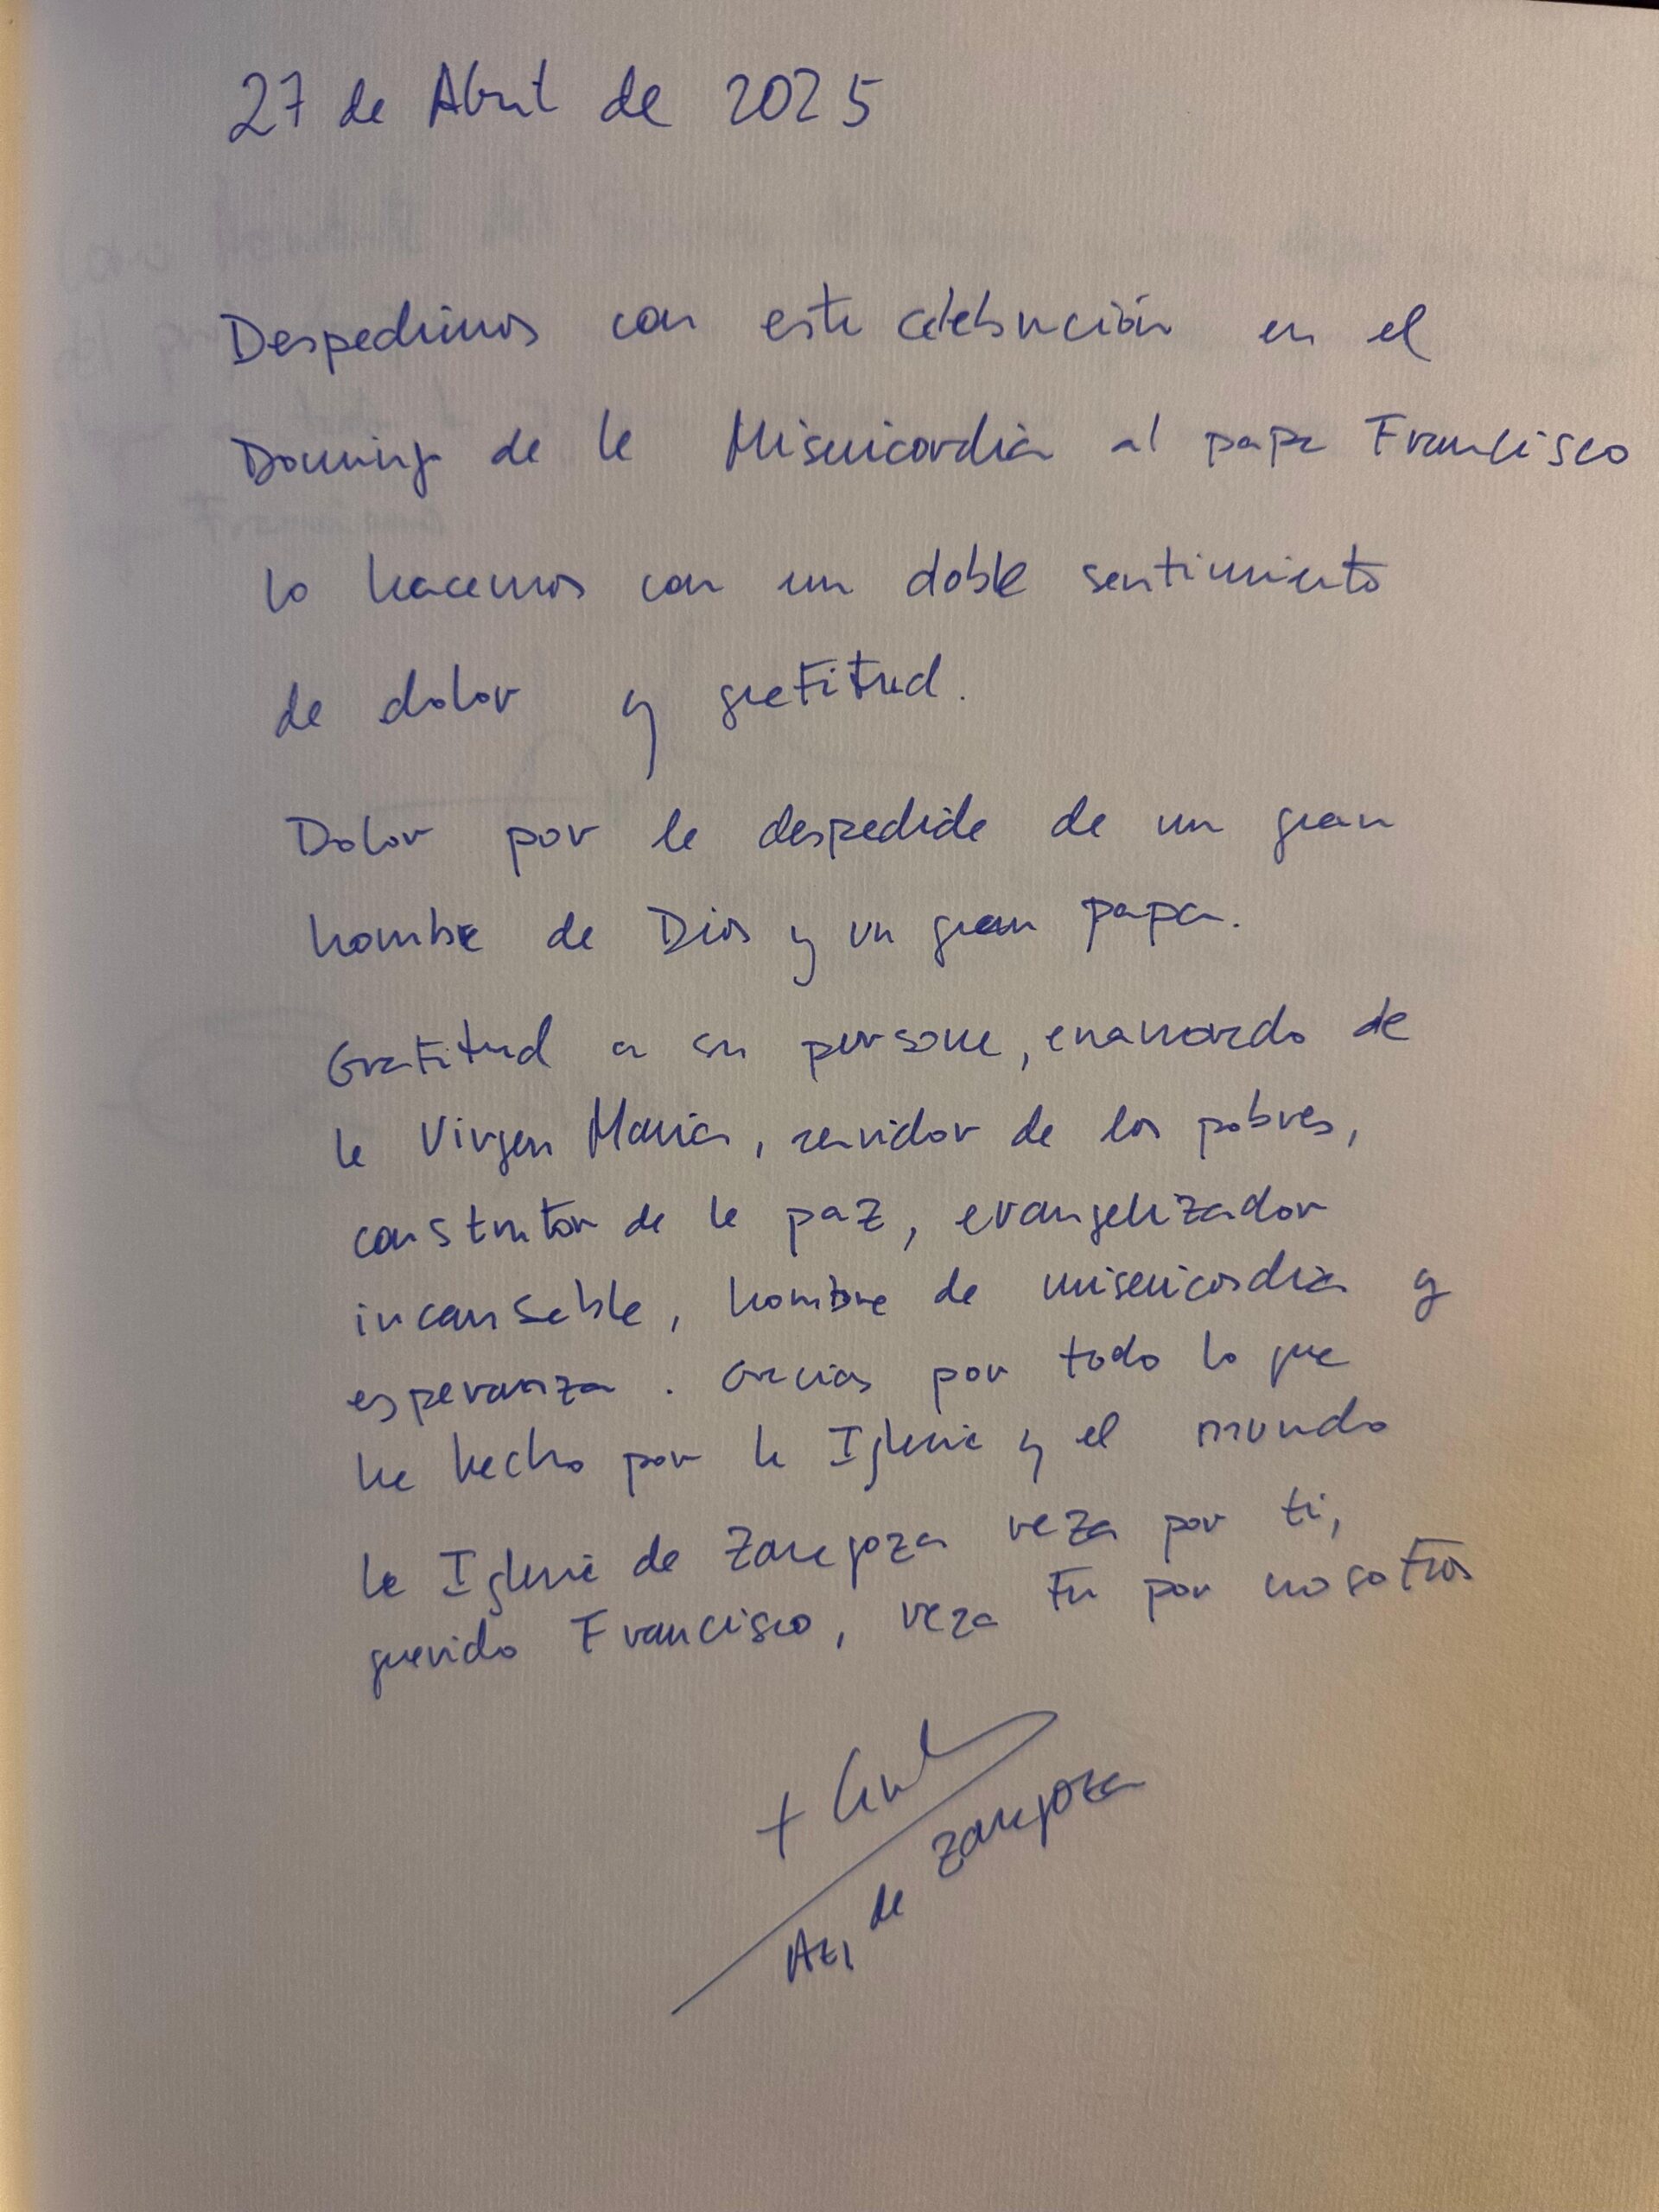 27 de Abril de 2025
Despedimos con esta celebración en el
Domingo de la Misericordia al papa Francisco
lo hacemos con un doble sentimiento
de dolor y gratitud.
Dolor por la despedida de un gran
hombre de Dios y un gran papa.
Gratitud a su persona, enamorado de
la Virgen María, servidor de los pobres,
constructor de la paz, evangelizador
incansable, hombre de misericordia y
esperanza. Gracias por todo lo que
ha hecho por la Iglesia y el mundo
la Iglesia de Zaragoza reza por ti,
querido Francisco, reza tu por nosotros
+
de Zaragoza